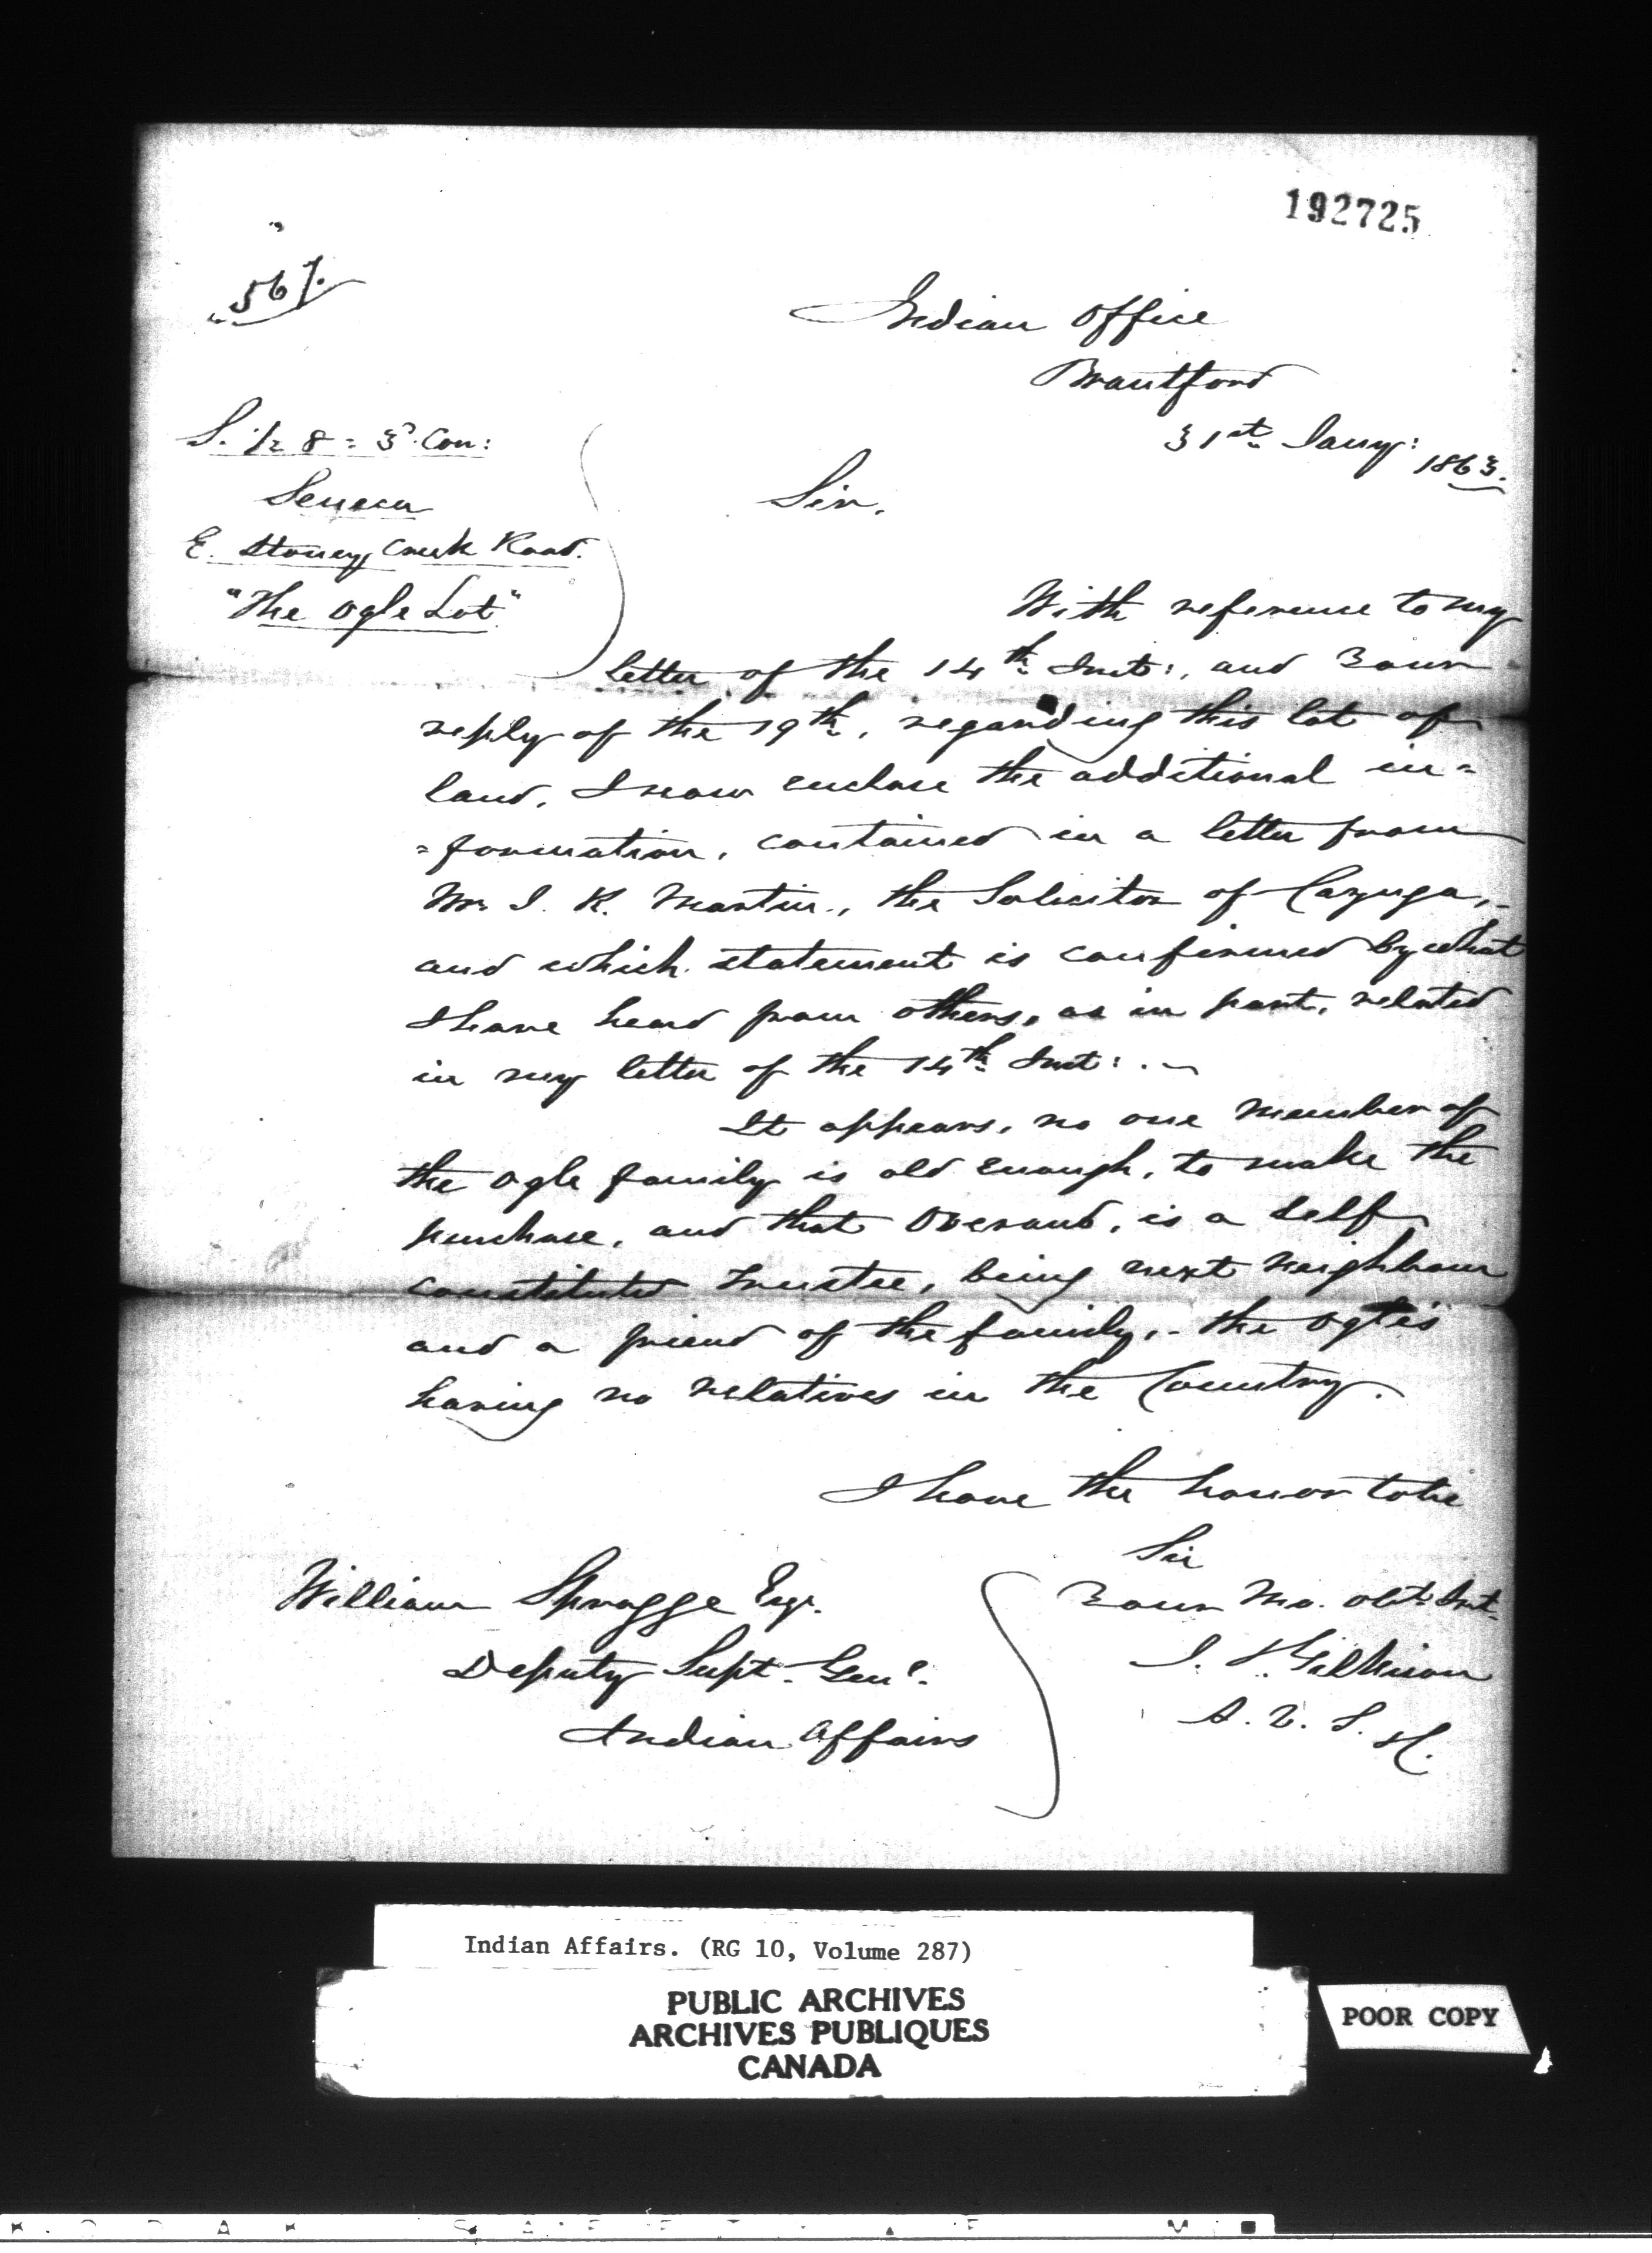 192725
567.
Indian Office
Brantford
31st Jany: 1863.
S. 1/2 8 = 3d Con:
Seneca
E. Stoney Creek Road.
"The Ogle Lot"
Sir,
With reference to my
letter of the 14th Inst:, and Your
reply of the 19th, regarding this lot of
land, I now enclose the additional in=
=formation, contained in a letter from
Mr. J. K. Martin, the Solicitor of Cayuga,-
and which statement is confirmed by what
I have heard from others, as in part, related
in my letter of the 14th Inst: . ~
It appears, no one member of
the Ogle family is old enough, to make the
purchase, and that is a self
constituted Trustee, being next neighbour
and a friend of the family,- the Ogles
having no relatives in the Country.
I have the honor to be
Sir
Your Mo. Obt. Svt.
J. Gilkison
William Spragge Esqr.
Deputy Supt. Genl.
Indian Affairs
Indian Affairs. (RG 10, Volume 287)
PUBLIC ARCHIVES
ARCHIVES PUBLIQUES
CANADA
POOR COPY